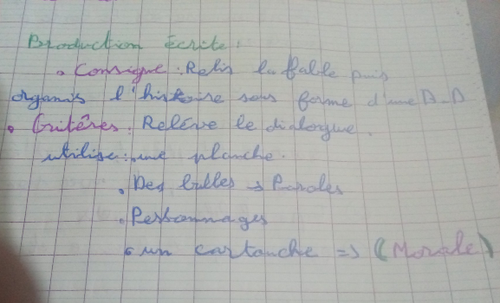 Production écrite :
• Consigne : Relis la fable puis
organis l'histoire sous forme d'une B-D
• Critères : Relève le dialogue.
utilise : une planche.
• Des bulles → Paroles
• Personnages
• un cartouche => (Morale)